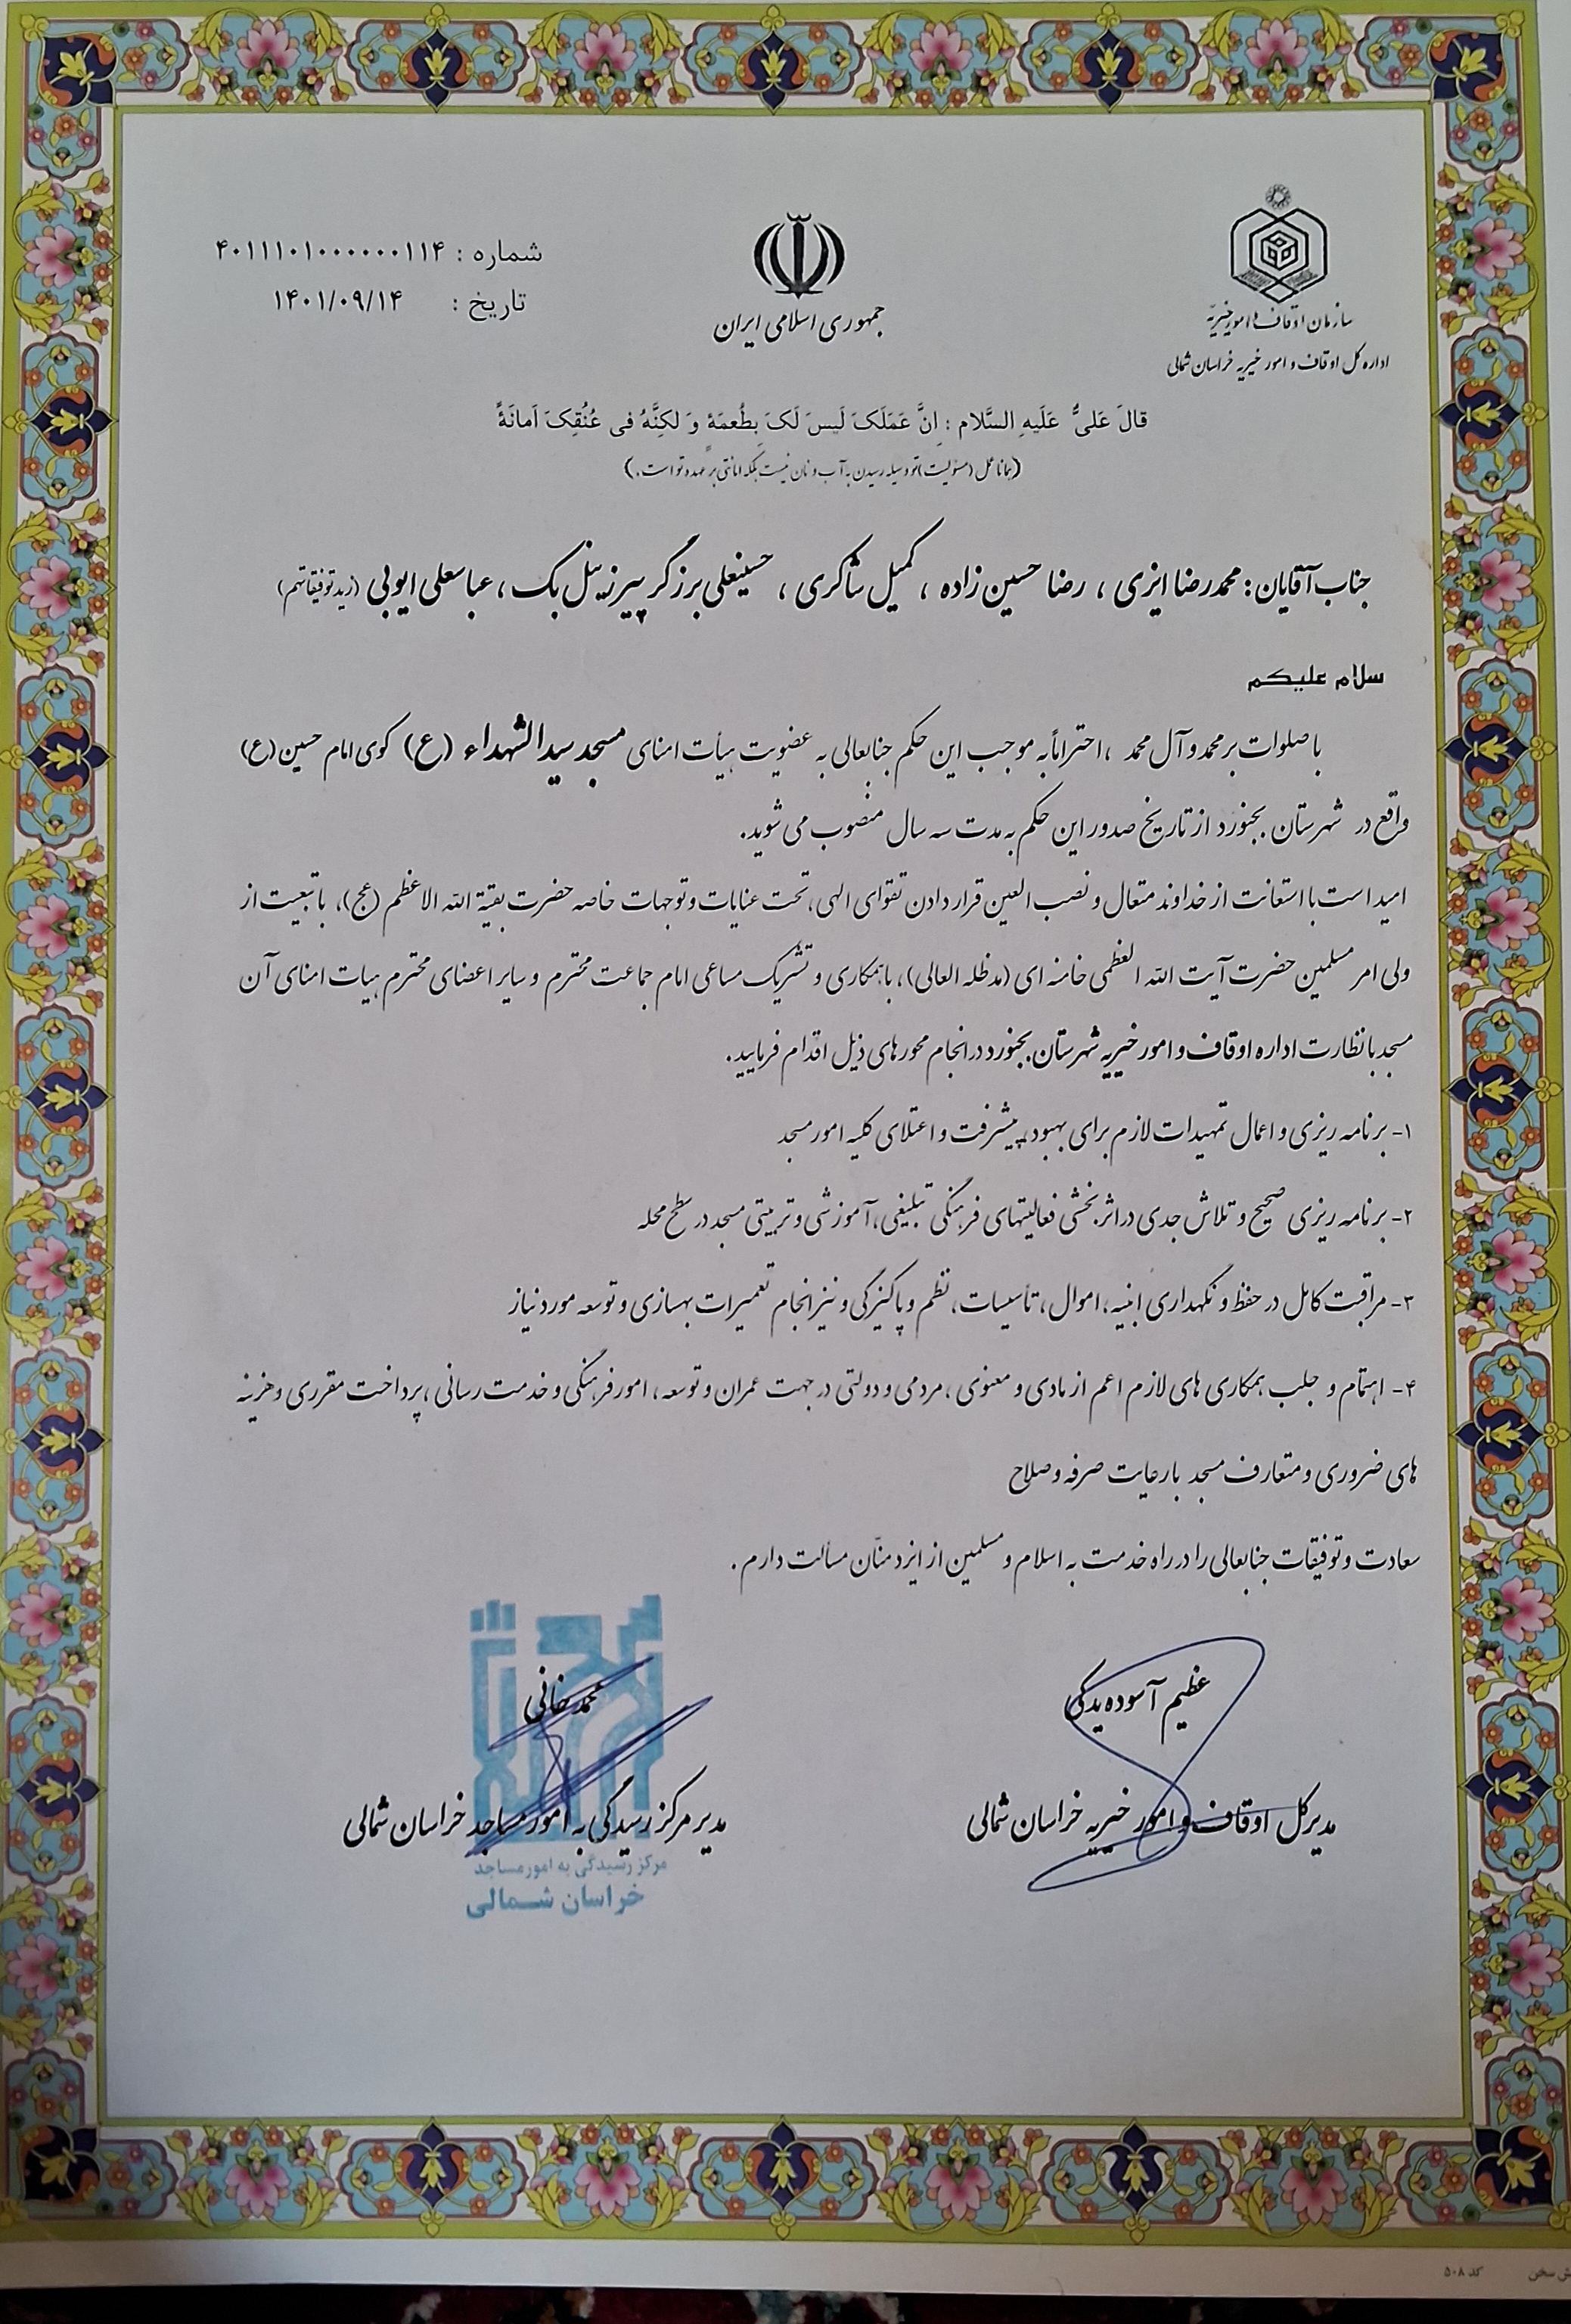 سازمان اوقاف و امور خیریه
اداره کل اوقاف و امور خیریه خراسان شمالی
جمهوری اسلامی ایران
شماره : ۴۰۱۱۱۰۱۰۰۰۰۰۰۱۱۴
تاریخ : ۱۴۰۱/۰۹/۱۴
قالَ عَلیٌّ عَلَیهِ السَّلام : اِنَّ عَمَلَکَ لَیسَ لَکَ بِطُعمَةٍ وَ لکِنَّهُ فی عُنُقِکَ اَمانَةً
(همانا عمل (مسؤلیت) تو وسیله رسیدن به آب و نان نیست بلکه امانتی بر عهده تو است.)
جناب آقایان: محمدرضا ایزی ، رضا حسین زاده ، کمیل شاکری ، حسینعلی برزگر پیرزینل بک ، عباسعلی ایوبی (زید توفیقاتهم)
سلام علیکم
با صلوات بر محمد و آل محمد ، احتراماً به موجب این حکم جنابعالی به عضویت هیأت امنای مسجد سیدالشهداء (ع) کوی امام حسین (ع)
واقع در شهرستان بجنورد از تاریخ صدور این حکم به مدت سه سال منصوب می شوید.
امید است با استعانت از خداوند متعال و نصب العین قرار دادن تقوای الهی، تحت عنایات و توجهات خاصه حضرت بقیة الله الاعظم (عج)، با تبعیت از
ولی امر مسلمین حضرت آیت الله العظمی خامنه ای (مدظله العالی)، با همکاری و تشریک مساعی امام جماعت محترم و سایر اعضای محترم هیات امنای آن
مسجد با نظارت اداره اوقاف و امور خیریه شهرستان بجنورد در انجام محورهای ذیل اقدام فرمایید.
۱- برنامه ریزی و اعمال تمهیدات لازم برای بهبود، پیشرفت و اعتلای کلیه امور مسجد
۲- برنامه ریزی صحیح و تلاش جدی در اثربخشی فعالیتهای فرهنگی تبلیغی، آموزشی و تربیتی مسجد در سطح محله
۳- مراقبت کامل در حفظ و نگهداری ابنیه، اموال، تأسیسات، نظم و پاکیزگی و نیز انجام تعمیرات بهسازی و توسعه مورد نیاز
۴- اهتمام و جلب همکاری های لازم اعم از مادی و معنوی ، مردمی و دولتی در جهت عمران و توسعه ، امور فرهنگی و خدمت رسانی ، پرداخت مقرری و هزینه
های ضروری و متعارف مسجد با رعایت صرفه و صلاح
سعادت و توفیقات جنابعالی را در راه خدمت به اسلام و مسلمین از ایزد منّان مسألت دارم .
عظیم آسوده یدکی
مدیرکل اوقاف و امور خیریه خراسان شمالی
محمد خانی
مدیر مرکز رسیدگی به امور مساجد خراسان شمالی
مرکز رسیدگی به امور مساجد
خراسان شمالی
کد ۵۰۸